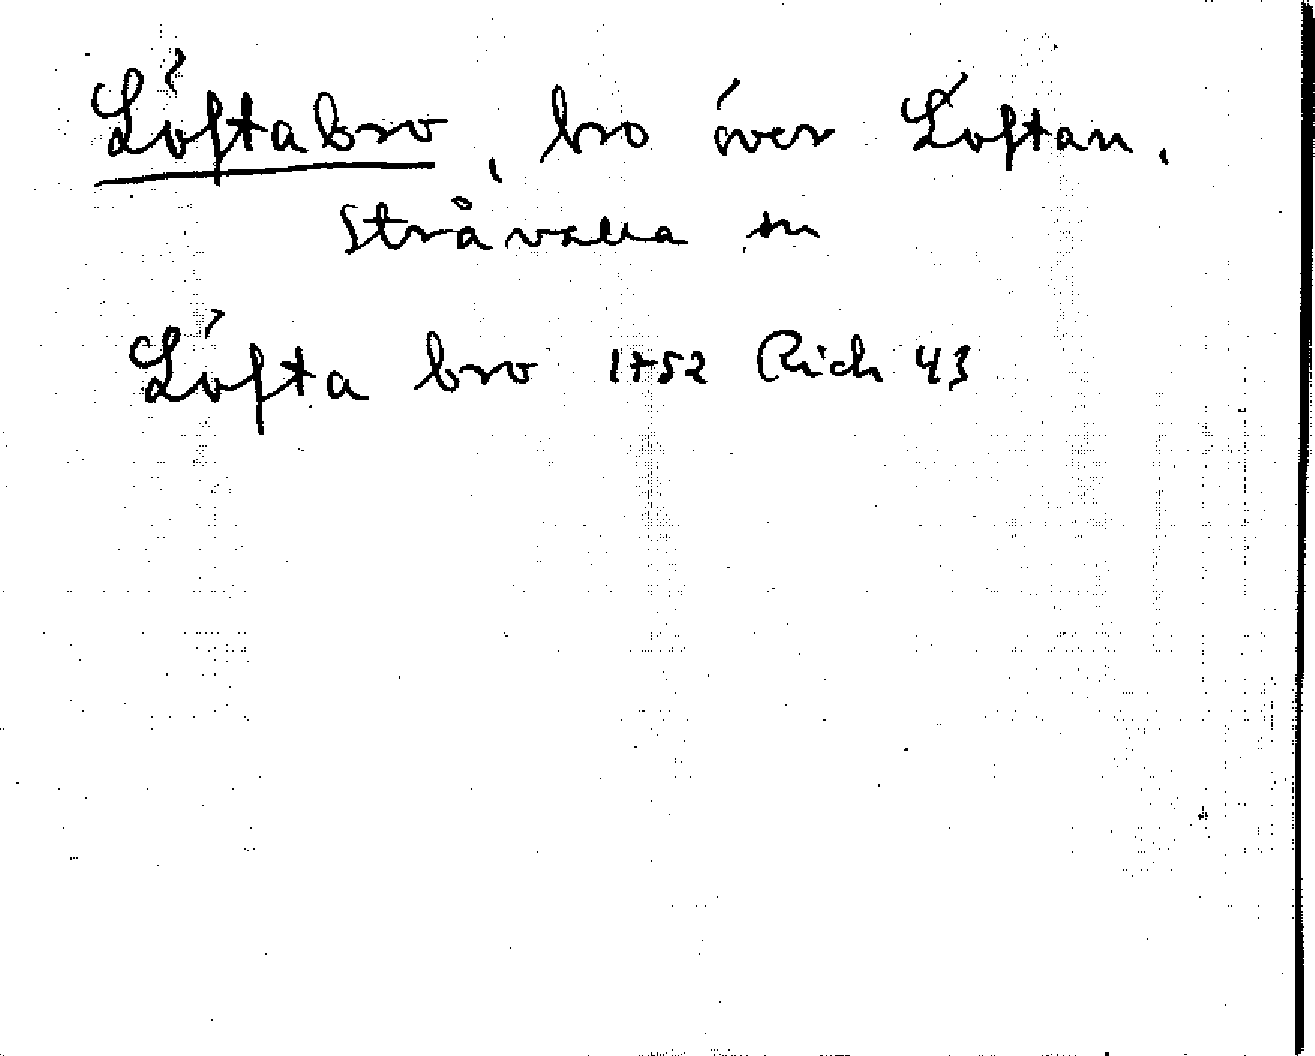 Löftabro, bro över Löftan.
Stråvalla sn
Löfta bro 1752 Rich 43